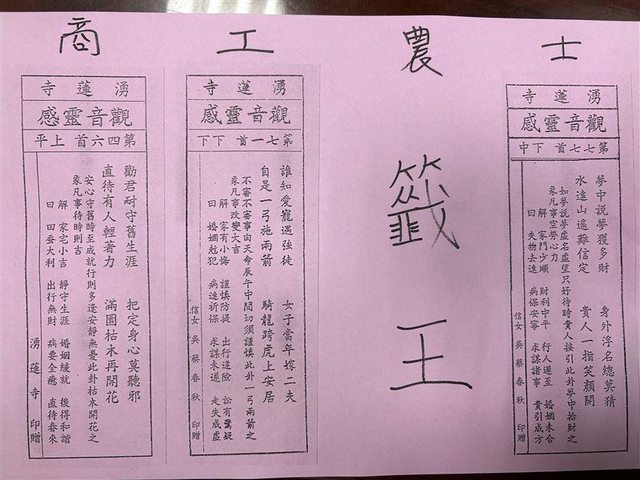 士
湧蓮寺
觀音靈感
第七七首 下中
夢中說夢獲多財 身外浮名總莫猜
水遠山遙難信定 貴人一指笑顏開
如夢說夢虛名虛望只好待時貴人接引此卦夢中拾財之
象凡事空勞心力
解 家門少順 財利中平 行人遲至 婚姻未合
曰 失物去遠 病保安寧 求謀諸事 貴引成方
信女 吳蔡春秋 印贈
農
籤王
工
湧蓮寺
觀音靈感
第七一首 下下
誰知愛寵遇強徒 女子當年嫁二夫
自是一弓施兩箭 騎龍跨虎上安居
不審不審事由天命辰午中間切須謹慎此卦一弓兩箭之
象凡事改變大吉
解 家有小悔 謹慎防提 出行違險 訟有驚疑
曰 婚姻尅犯 病連祈保 求謀未遂 走失成虛
信女 吳蔡春秋 印贈
商
湧蓮寺
觀音靈感
第四六首 上平
勸君耐守舊生涯 把定身心莫聽邪
直待有人輕著力 滿園枯木再開花
安心守舊時至成就行則多逢安靜無憂此卦枯木開花之
象凡事待時則吉
解 家宅小吉 靜守生涯 婚姻緩就 後得和諧
曰 田蚕大利 出行無財 病要全癒 直待春來
湧蓮寺 印贈